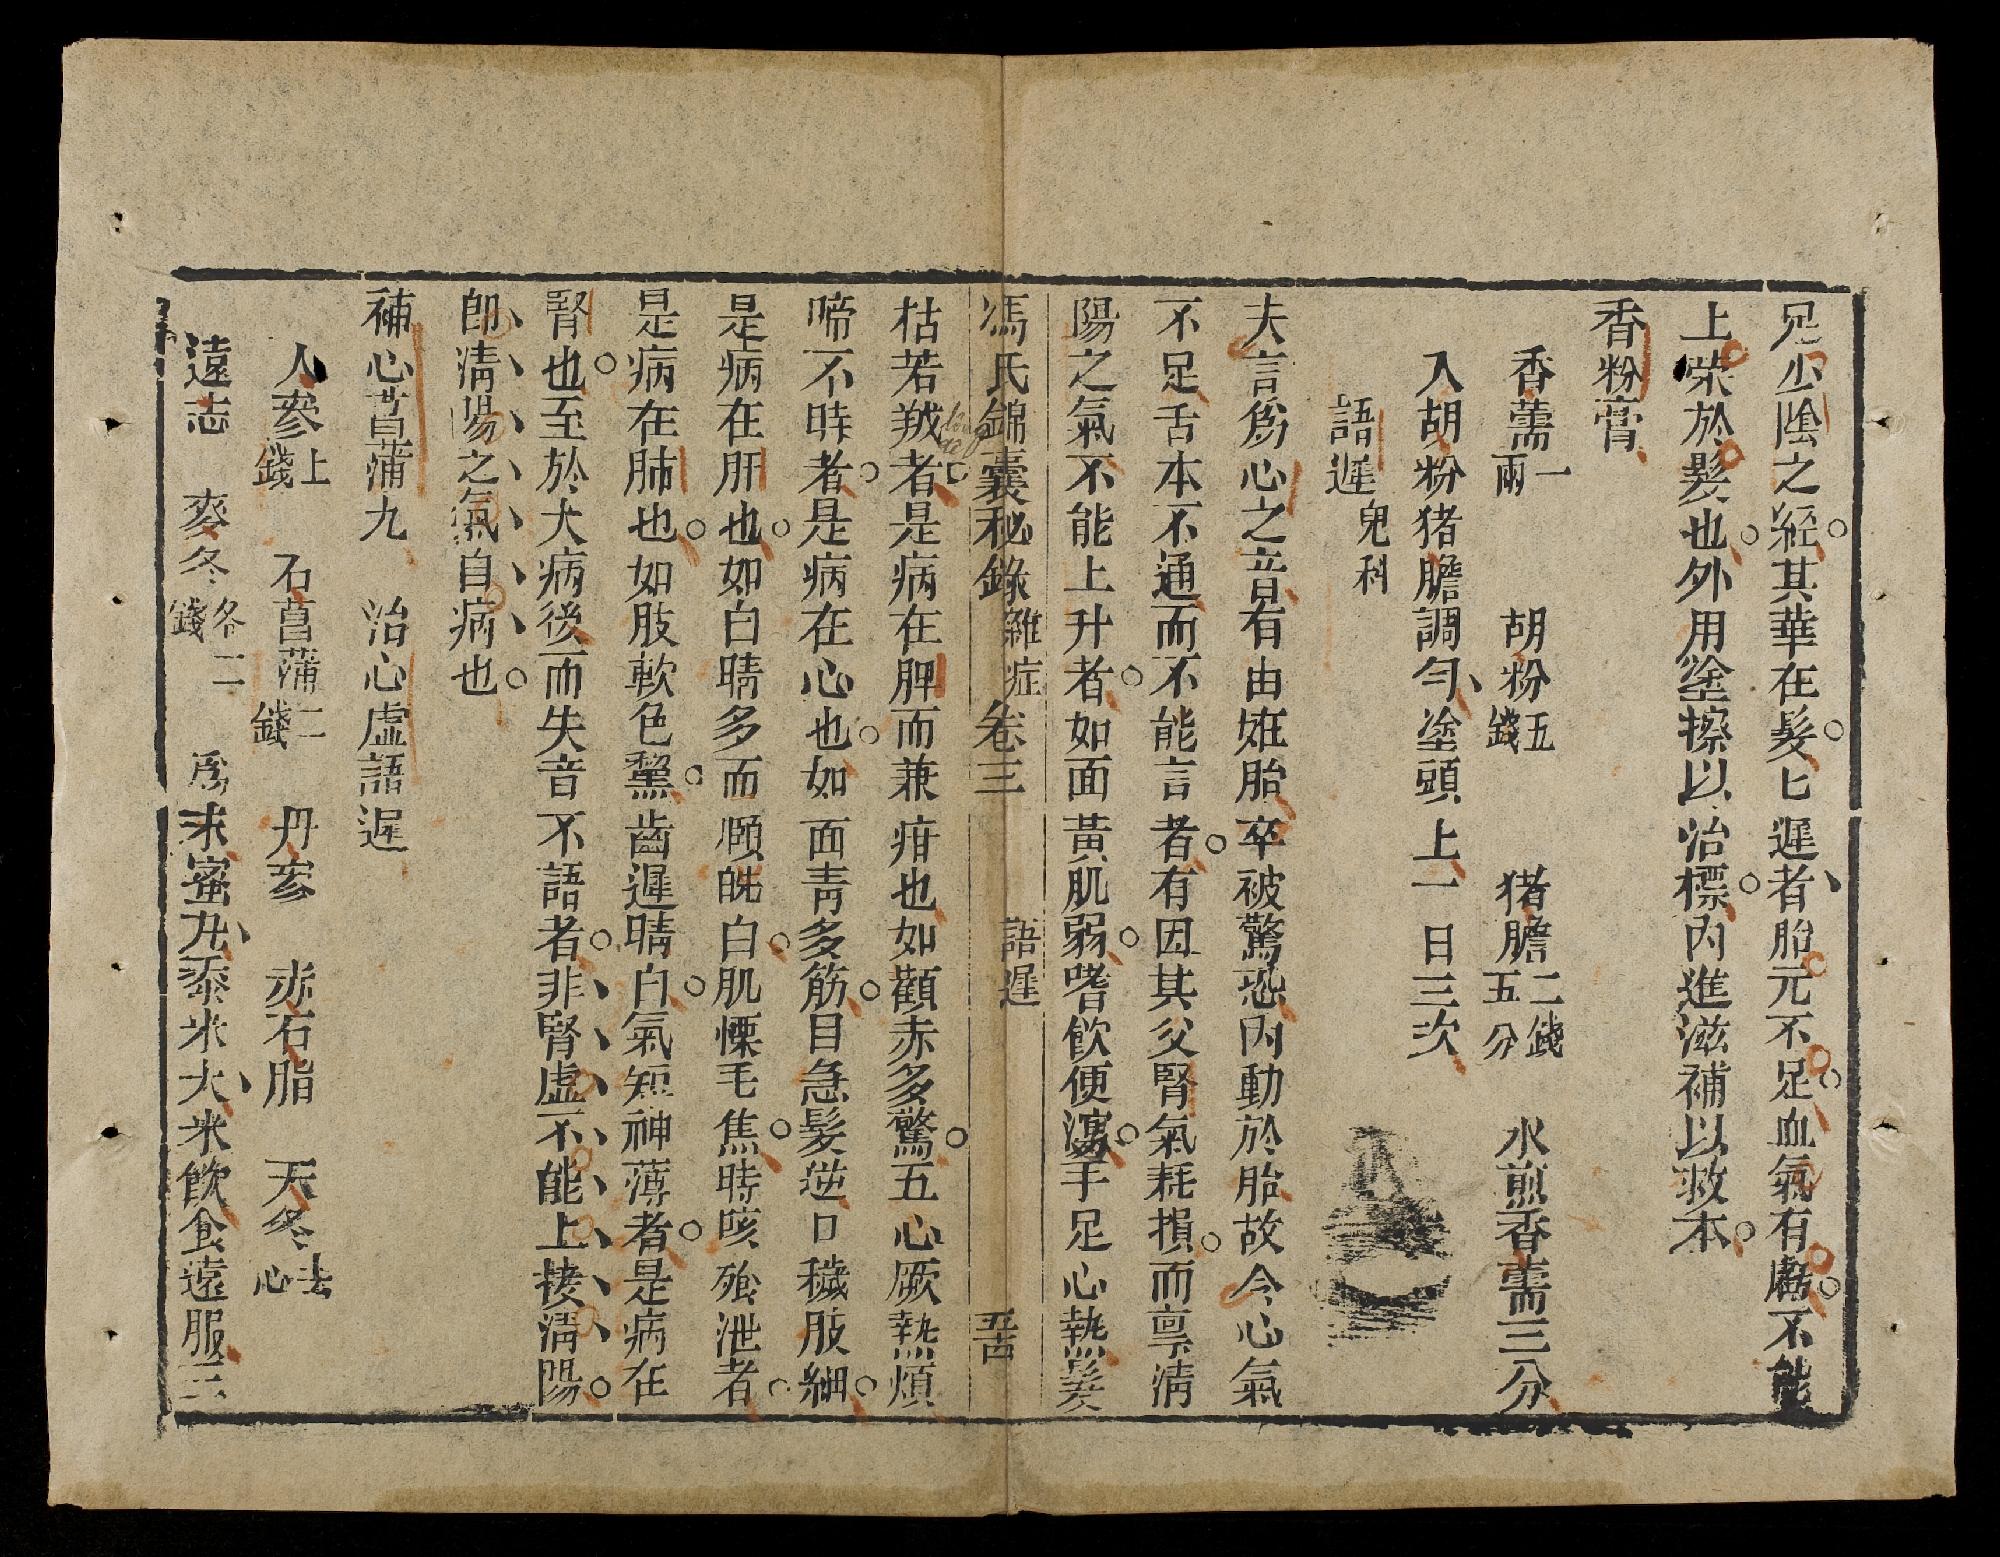 足少陰之經其華在髮匕遲者胎元不足血氣有虧不能
上榮於髮也外用塗搽以治標內進滋補以救本
香粉膏
香薷一兩 胡粉五錢 猪膽二錢五分 水煎香薷三分
入胡粉猪膽調勻塗頭上一日三次
語遲兒科
夫言為心之音有由姙胎卒被驚恐內動於胎故令心氣
不足舌本不通而不能言者有因其父腎氣耗損而禀清
陽之氣不能上升者如面黃肌弱嗜飲便瀉手足心熱髮
馮氏錦囊秘錄 雜症 卷三 語遲
枯若羢者是病在脾而兼疳也如顴赤多驚五心厥熱煩
啼不時者是病在心也如面青多筋目急髮逆口穢肢細
是病在肝也如白睛多而顱㿠白肌慄毛焦時咳飱泄者
是病在肺也如肢軟色黧齒遲睛白氣短神薄者是病在
腎也至於大病後而失音不語者非腎虛不能上接清陽
即清陽之氣自病也
補心菖蒲九 治心虛語遲
人參上錢 石菖蒲二錢 丹參 赤石脂 天冬去心
遠志 麥冬各二錢 為末蜜丸黍米大米飲食遠服三